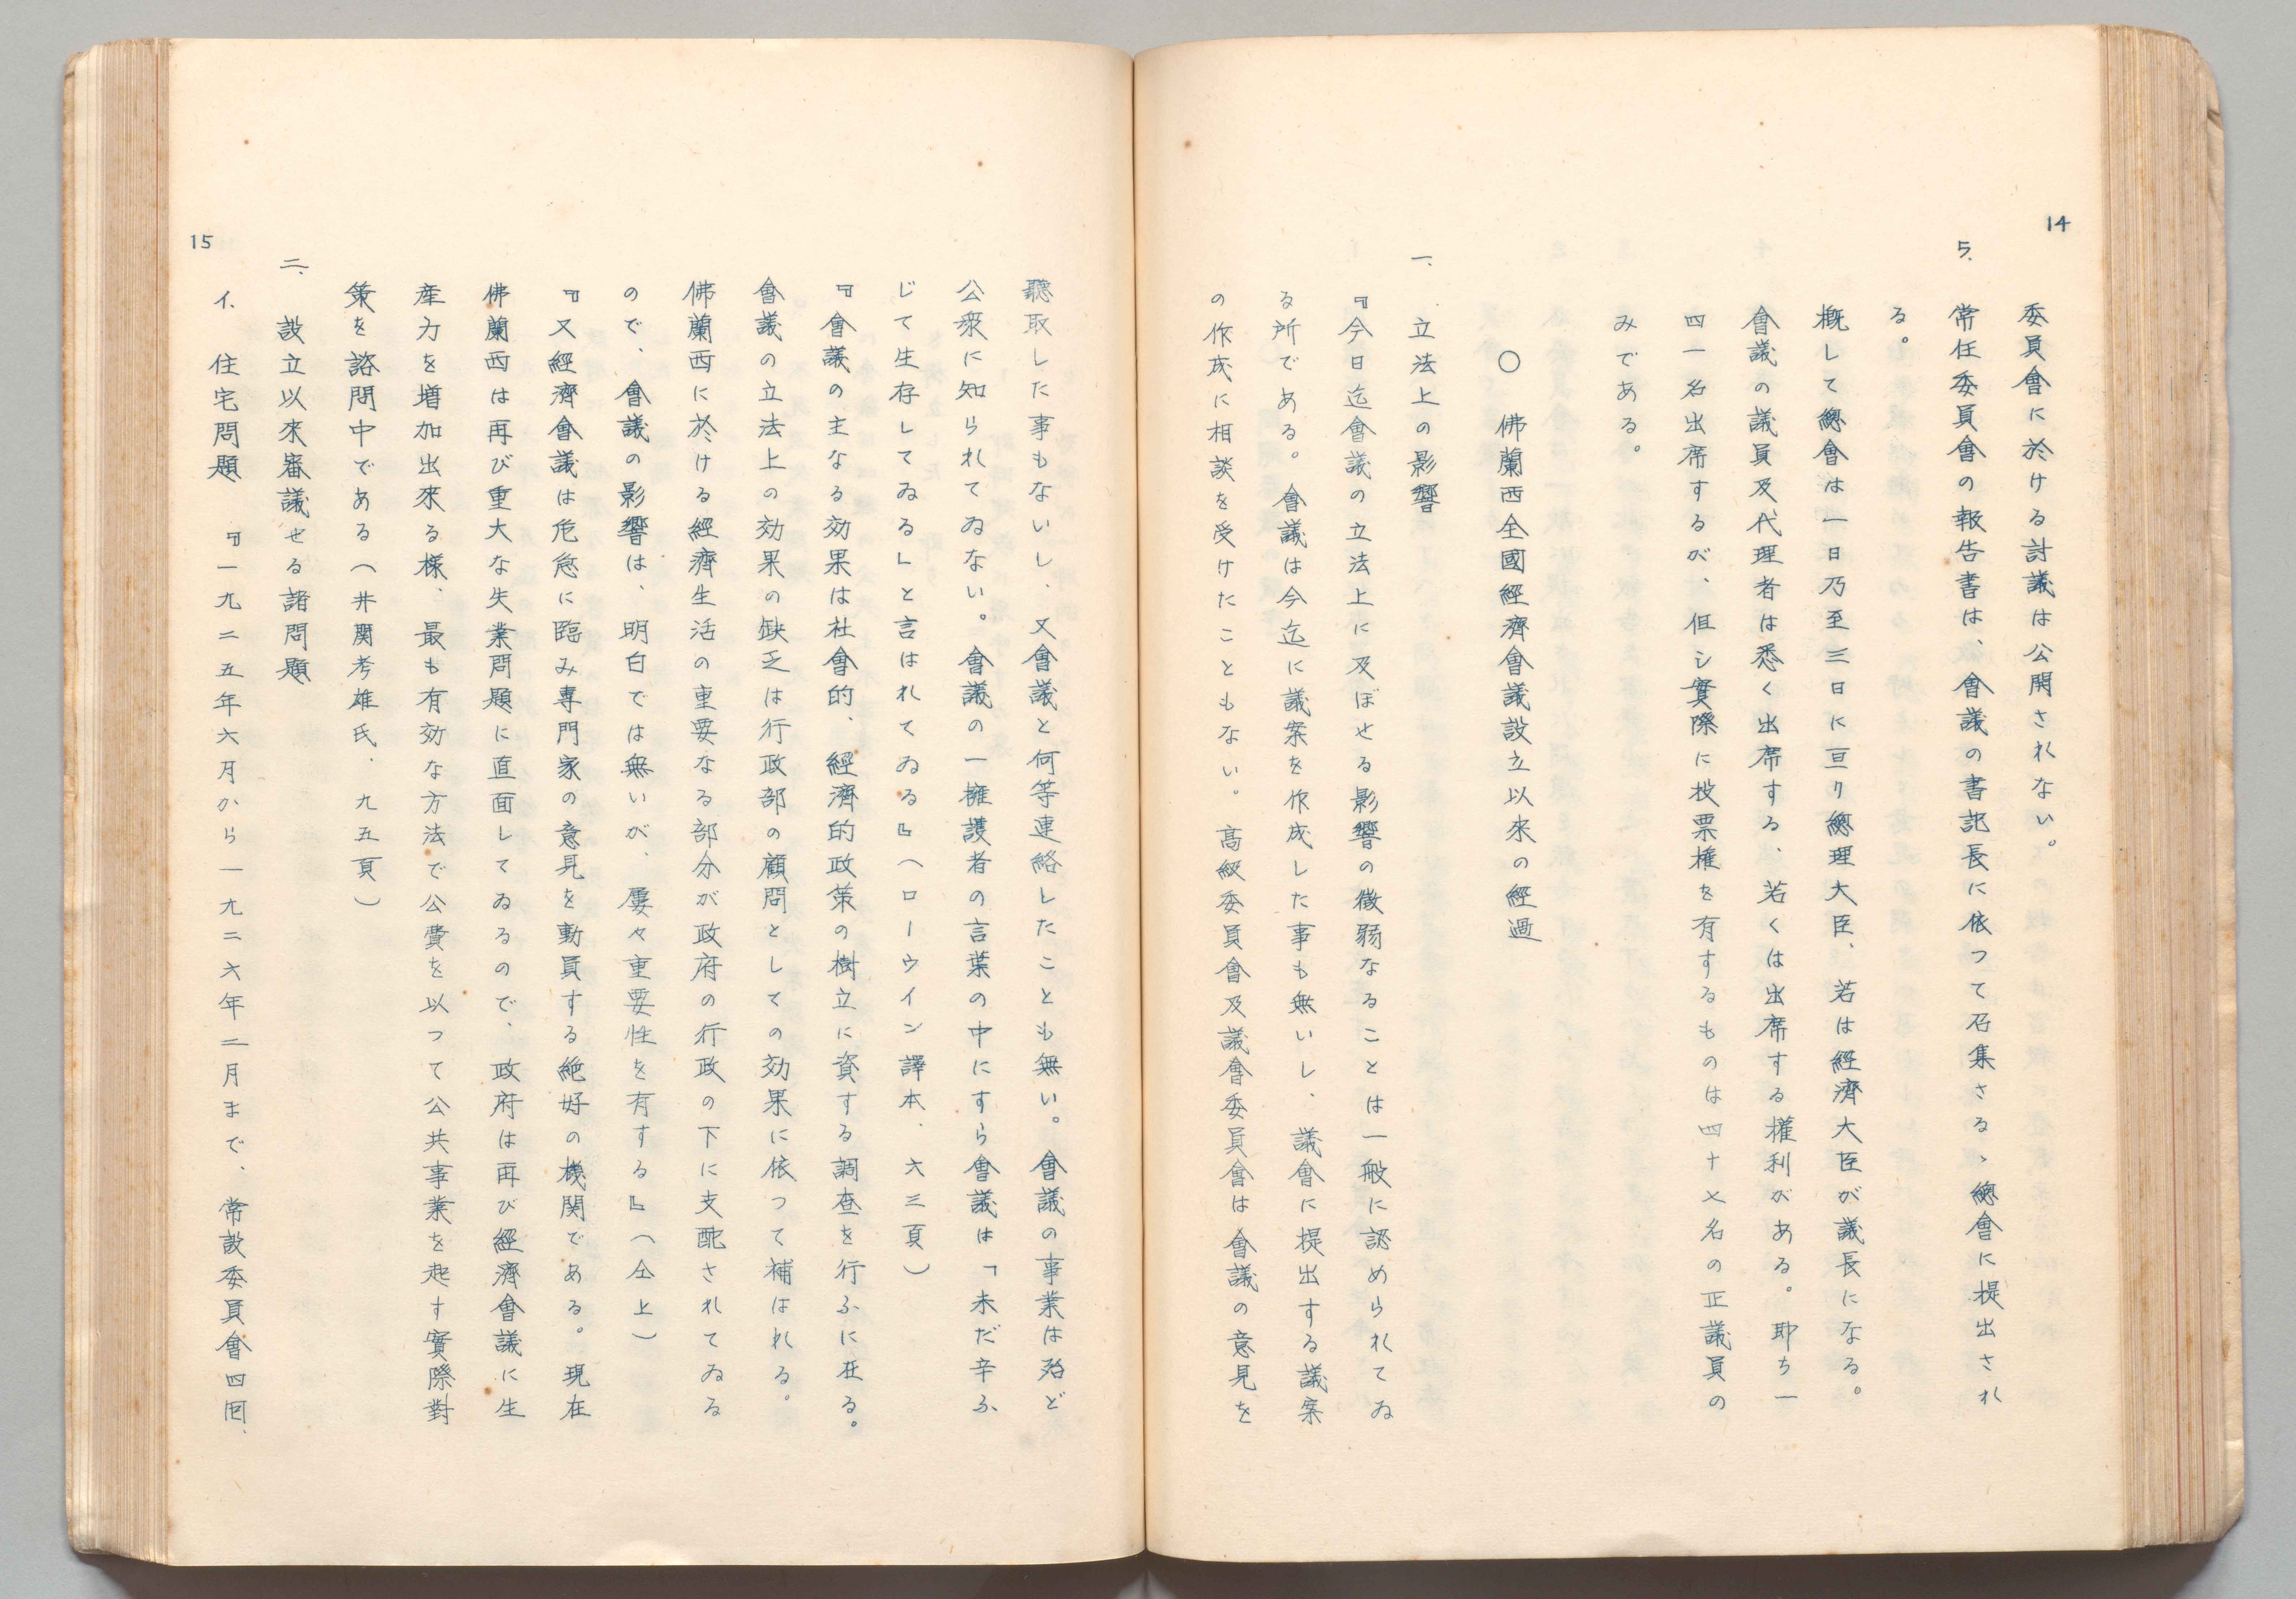 14
委員會に於ける討議は公開されない。
5. 常任委員會の報告書は、會議の書記長に依つて召集さる、總會に提出され
る。
概して總會は一日乃至三日に亘り總理大臣、若は經濟大臣が議長になる。
會議の議員及代理者は悉く出席する、若くは出席する權利がある。耶ち一
四一名出席するが、但シ實際に投票權を有するものは四十七名の正議員の
みである。
○ 佛蘭西全國經濟會議設立以來の經過
一、立法上の影響
『今日迄會議の立法上に及ぼせる影響の微弱なることは一般に認められてゐ
る所である。會議は今迄に議案を作成した事も無いし、議會に提出する議案
の作成に相談を受けたこともない。高級委員會及議會委員會は會議の意見を
聽取した事もないし、又會議と何等連絡したことも無い。會議の事業は殆ど
公衆に知られてゐない。會議の一擁護者の言葉の中にすら會議は「未だ辛ふ
じて生存してゐる」と言はれてゐる』(ローウイン譯本、六三頁)
『會議の主なる効果は社會的、經濟的政策の樹立に資する調査を行ふに在る。
會議の立法上の効果の缺乏は行政部の顧問としての効果に依つて補はれる。
佛蘭西に於ける經濟生活の重要なる部分が政府の行政の下に支配されてゐる
ので、會議の影響は、明白では無いが、屢々重要性を有する』(仝上)
『又經濟會議は危急に臨み専門家の意見を動員する絶好の機関である。現在
佛蘭西は再び重大な失業問題に直面してゐるので、政府は再び經濟會議に生
産力を増加出來る樣、最も有効な方法で公費を以つて公共事業を起す實際對
策を諮問中である(井関孝雄氏、九五頁)
二、設立以來審議せる諸問題
イ、住宅問題 『一九二五年六月から一九二六年二月まで、常設委員會四囘、
15